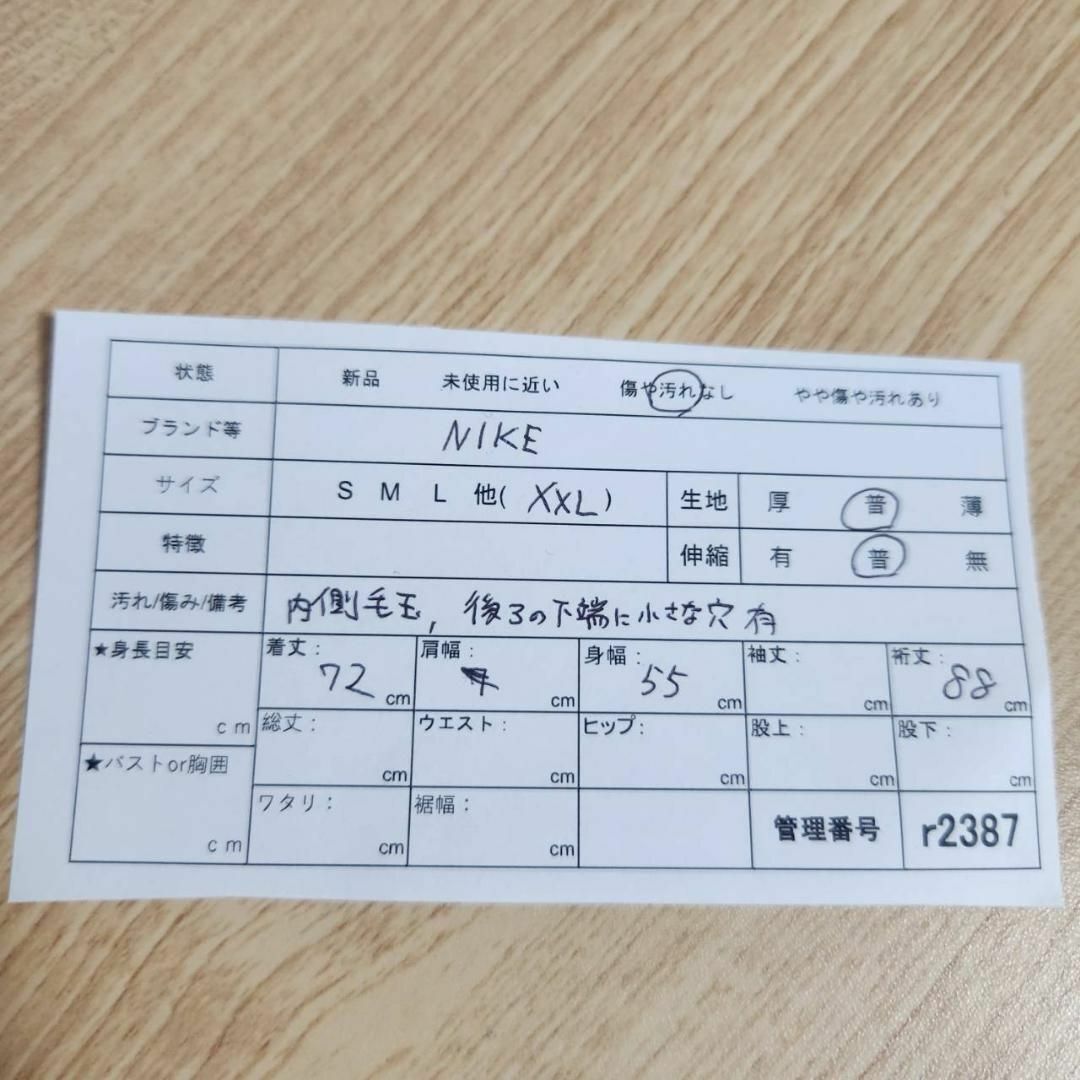 状態 新品 未使用に近い 傷や汚れなし やや傷や汚れあり
ブランド等 NIKE
サイズ S M L 他( XXL ) 生地 厚 普 薄
特徴 伸縮 有 普 無
汚れ/傷み/備考 内側毛玉, 後ろの下端に小さな穴有
★身長目安 cm 着丈: 72 cm 肩幅: cm 身幅: 55 cm 袖丈: cm 裄丈: 88 cm
総丈: cm ウエスト: cm ヒップ: cm 股上: cm 股下: cm
★バストor胸囲 cm ワタリ: cm 裾幅: cm 管理番号 r2387